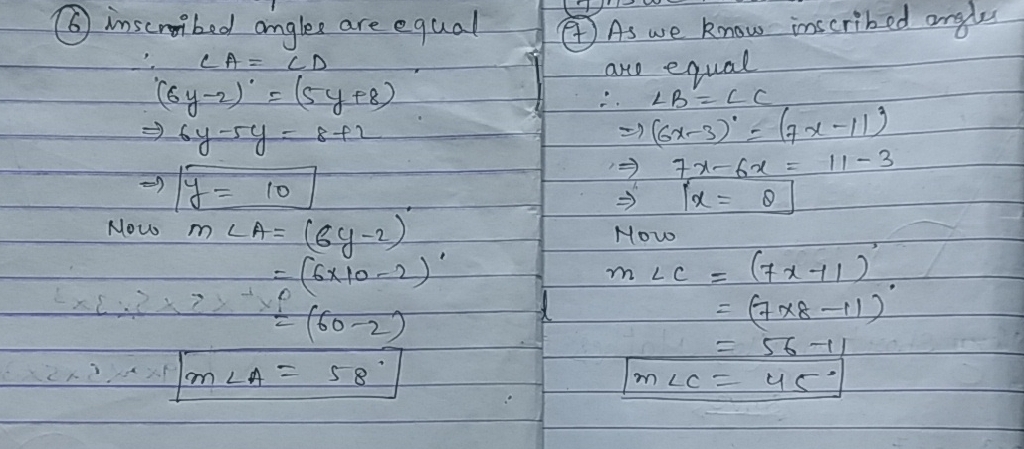 ⑥ inscribed angles are equal
∴ ∠A = ∠D
(6y-2)° = (5y+8)
⇒ 6y-5y = 8+2
⇒ y = 10
Now m∠A = (6y-2)°
= (6x10-2)°
= (60-2)
m∠A = 58°
⑦ As we know inscribed angles
are equal
∴ ∠B = ∠C
⇒ (6x-3)° = (7x-11)
⇒ 7x-6x = 11-3
⇒ x = 8
Now
m∠C = (7x-11)°
= (7x8-11)°
= 56-11
m∠C = 45°